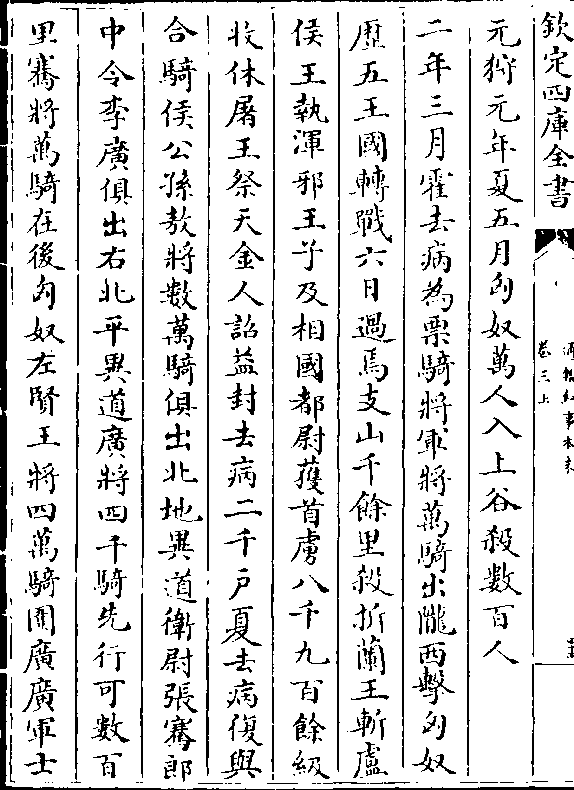 欽定四庫全書
通鑑紀事本末
卷三上
元狩元年夏五月匈奴萬人入上谷殺數百人
二年三月霍去病為票騎將軍將萬騎出隴西擊匈奴
歴五王國轉戰六日過焉支山千餘里殺折蘭王斬盧
侯王執渾邪王子及相國都尉獲首虜八千九百餘級
收休屠王祭天金人詔益封去病二千户夏去病復與
合騎侯公孫敖將數萬騎俱出北地異道衛尉張騫郎
中令李廣俱出右北平異道廣將四千騎先行可數百
里騫將萬騎在後匈奴左賢王將四萬騎圍廣廣軍士